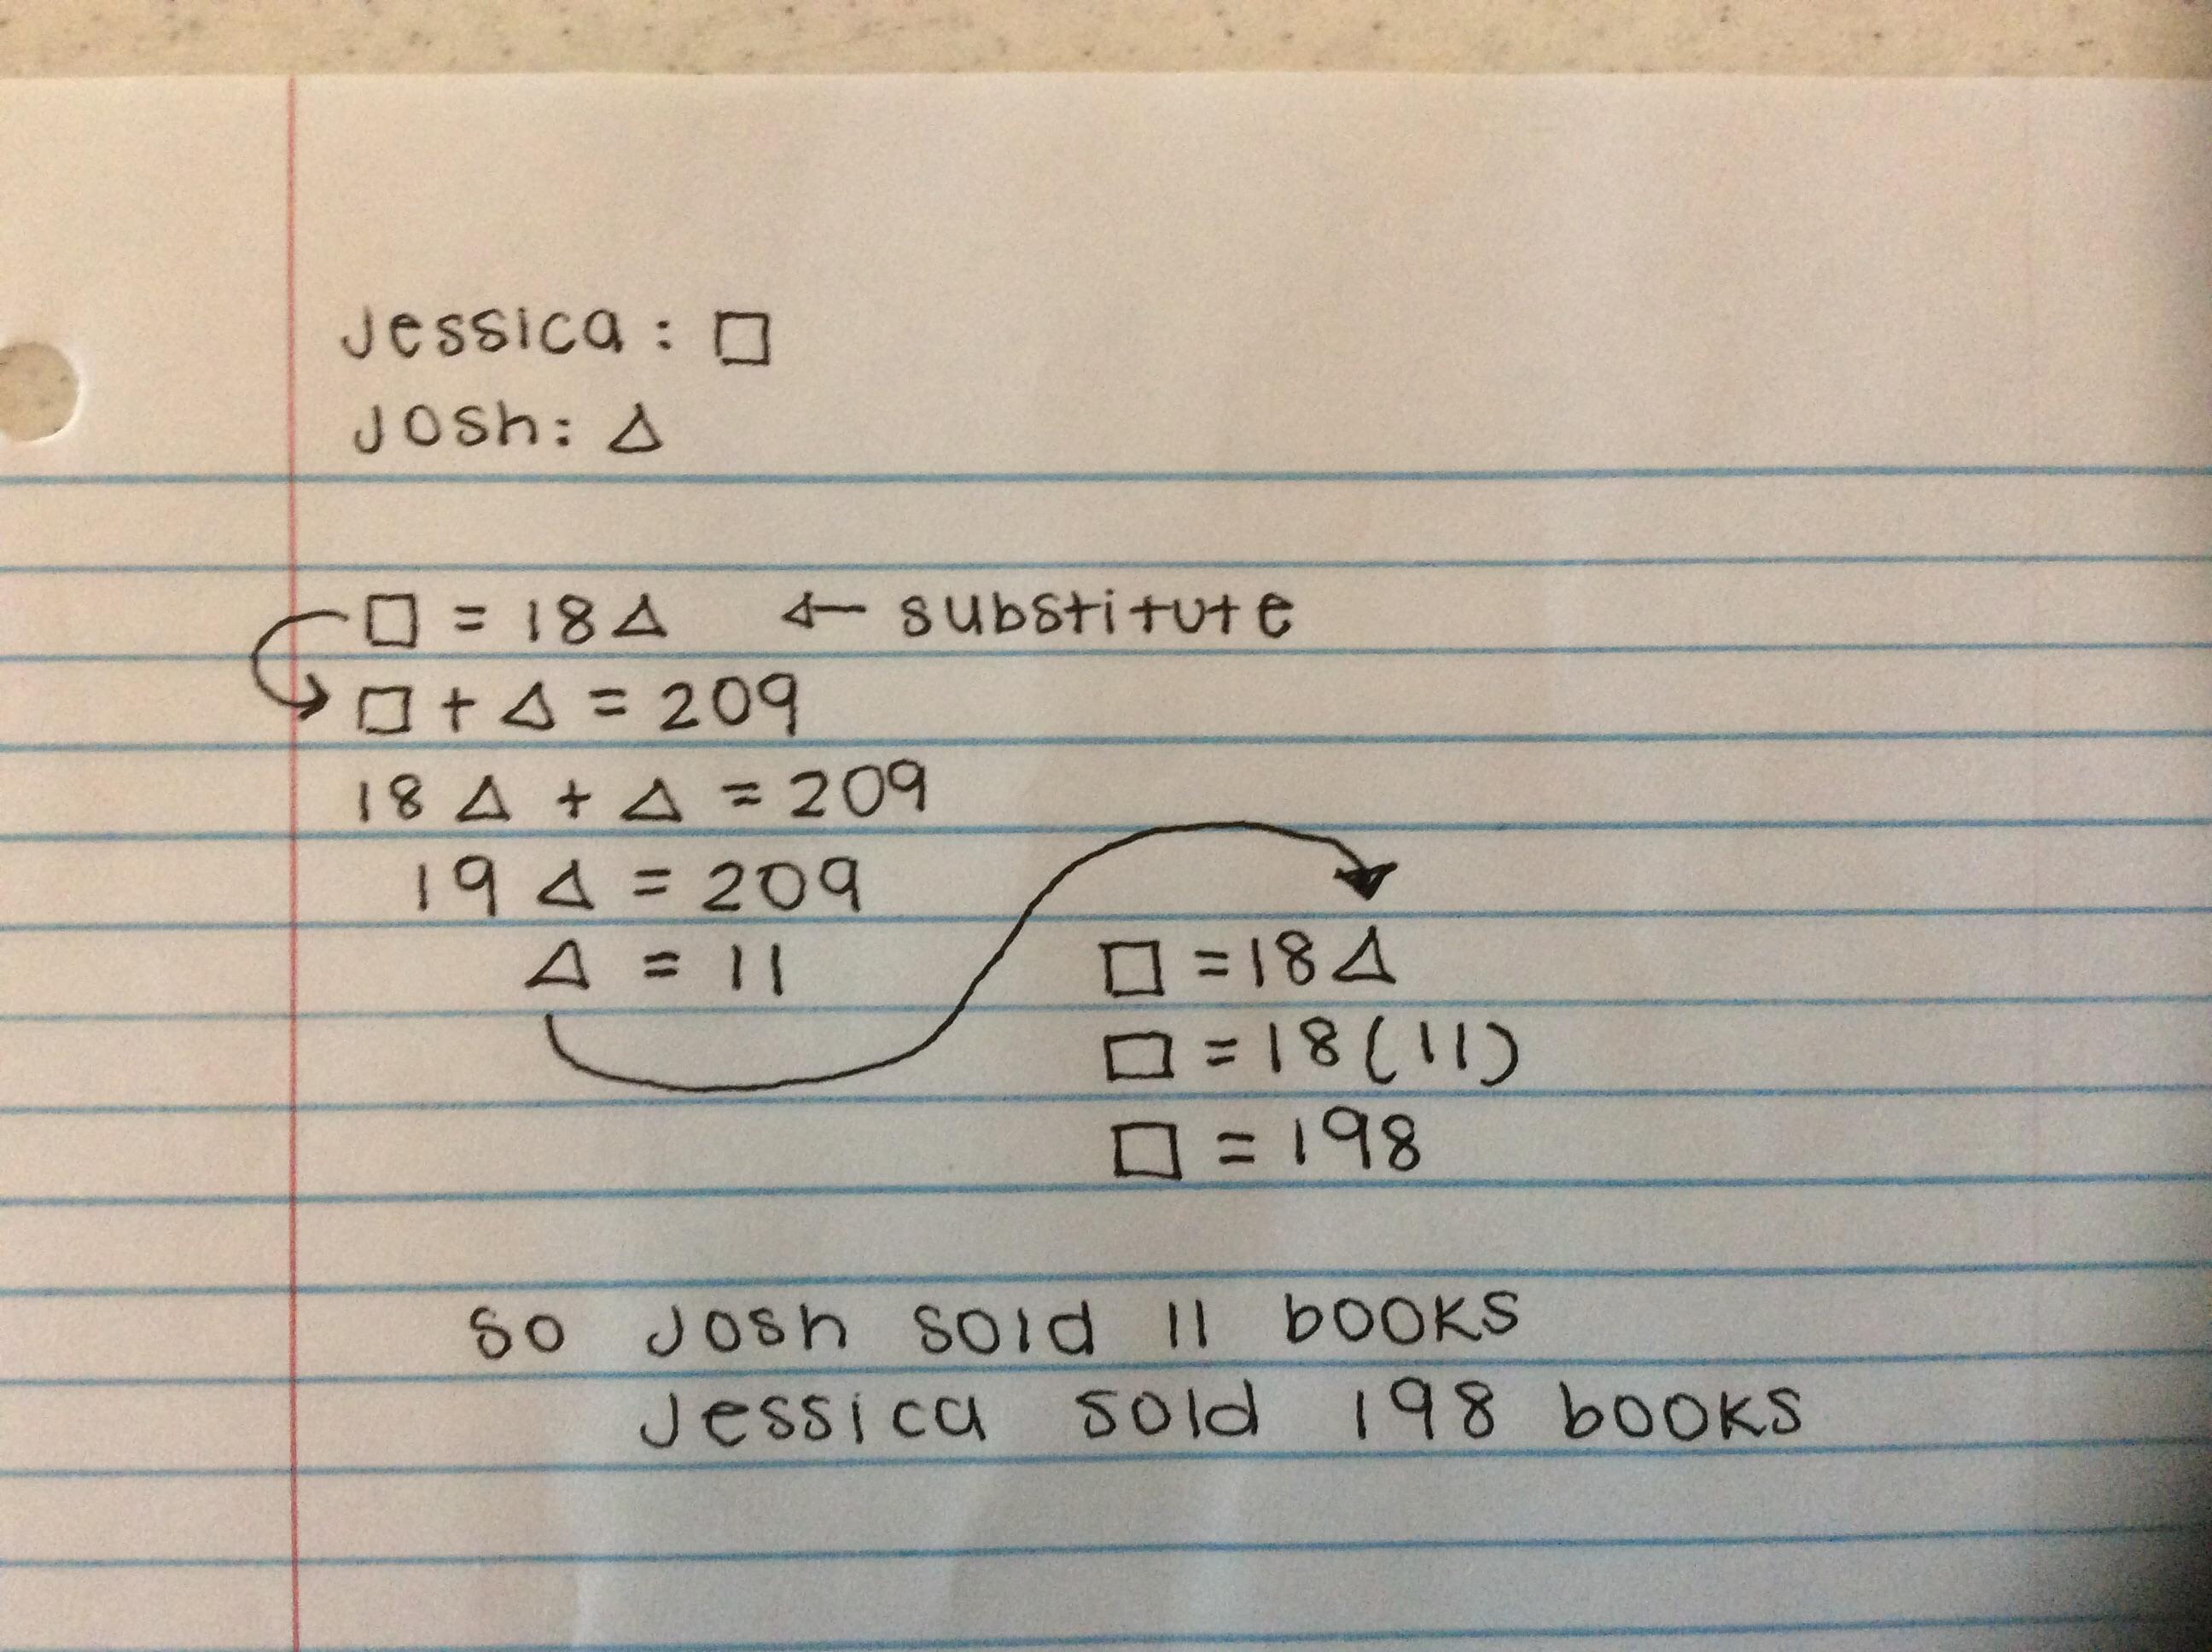 Jessica: □
Josh: △
□ = 18△ ← substitute
□ + △ = 209
18△ + △ = 209
19△ = 209
△ = 11
□ = 18△
□ = 18(11)
□ = 198
so Josh sold 11 books
Jessica sold 198 books